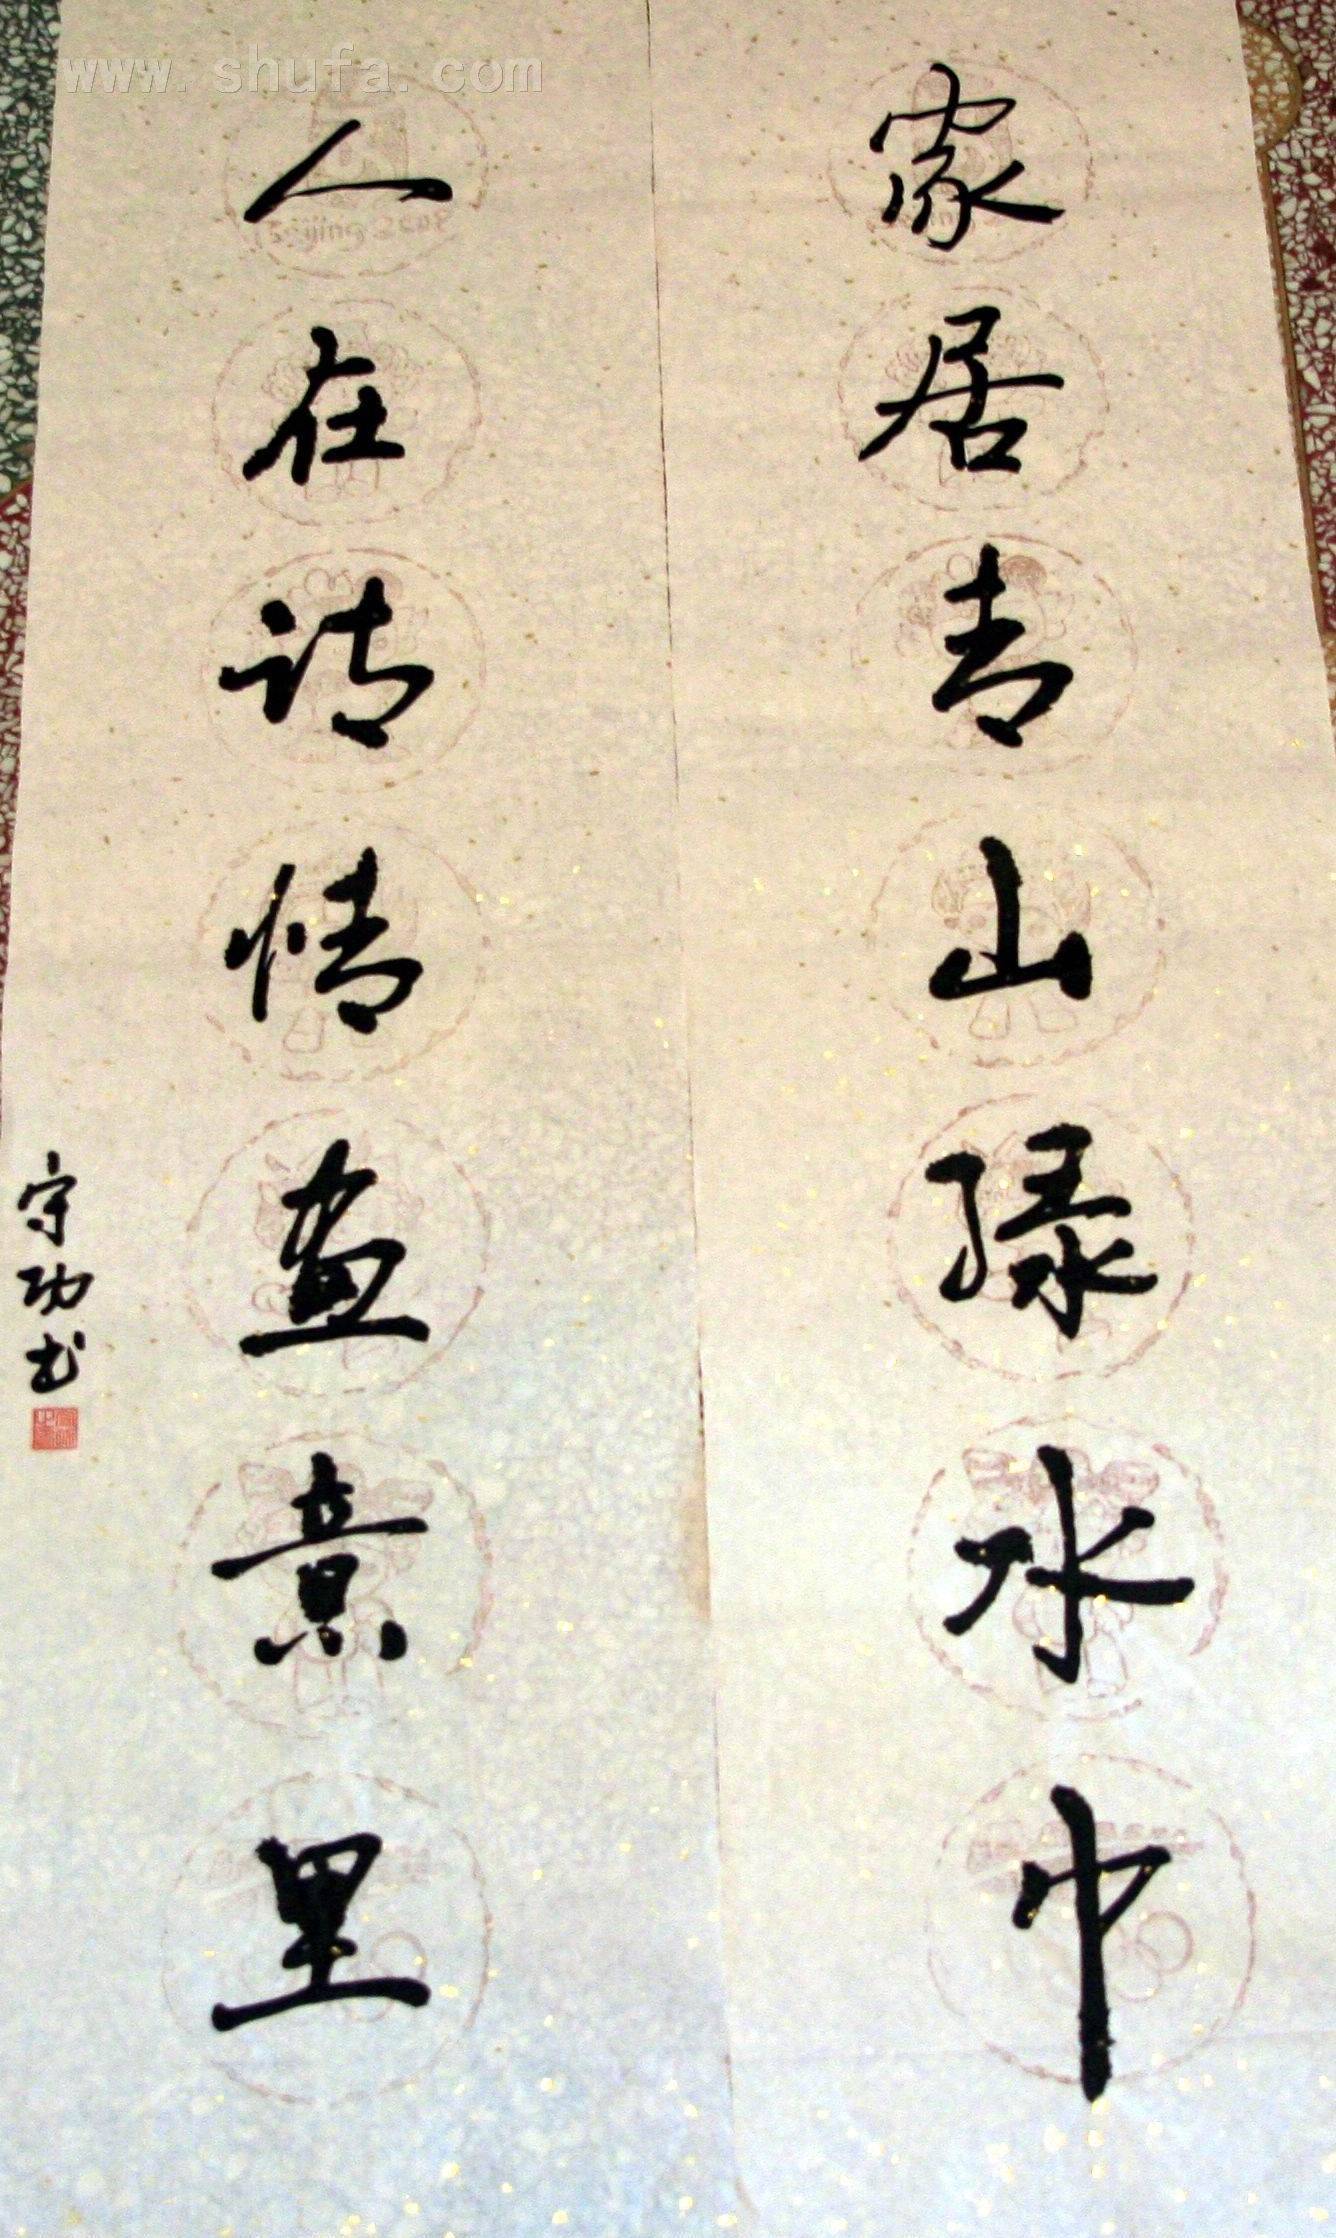 家居青山绿水中
人在诗情画意里
守功书
www.shufa.com
Beijing 2008